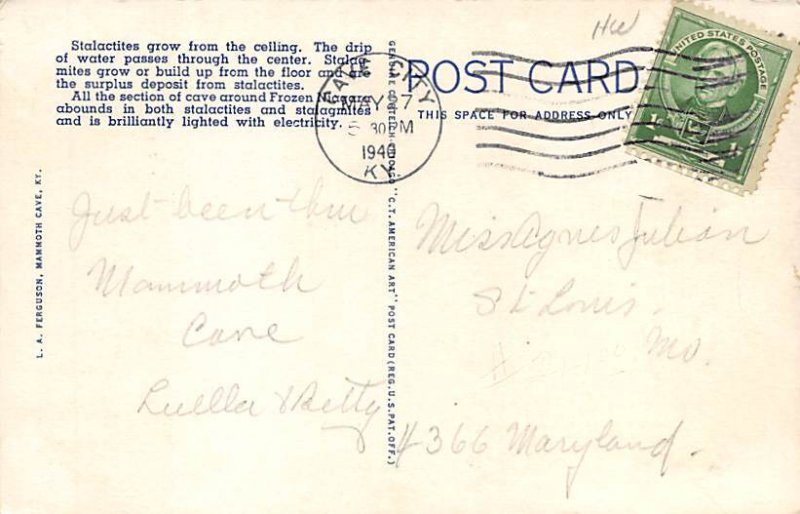 Stalactites grow from the ceiling. The drip
of water passes through the center. Stalag-
mites grow or build up from the floor and are
the surplus deposit from stalactites.
All the section of cave around Frozen Niagara
abounds in both stalactites and stalagmites
and is brilliantly lighted with electricity.
HW
POST CARD
THIS SPACE FOR ADDRESS ONLY
UNITED STATES POSTAGE
CAVE CITY
MAY 7
5 30 PM
1940
KY.
L. A. FERGUSON, MAMMOTH CAVE, KY.
"C.T. AMERICAN ART" POST CARD (REG. U.S. PAT. OFF.)
Just been thru
Mammoth
Cave
Luella & Betty
Miss Agnes Julian
St Louis.
Mo.
#366 Maryland.